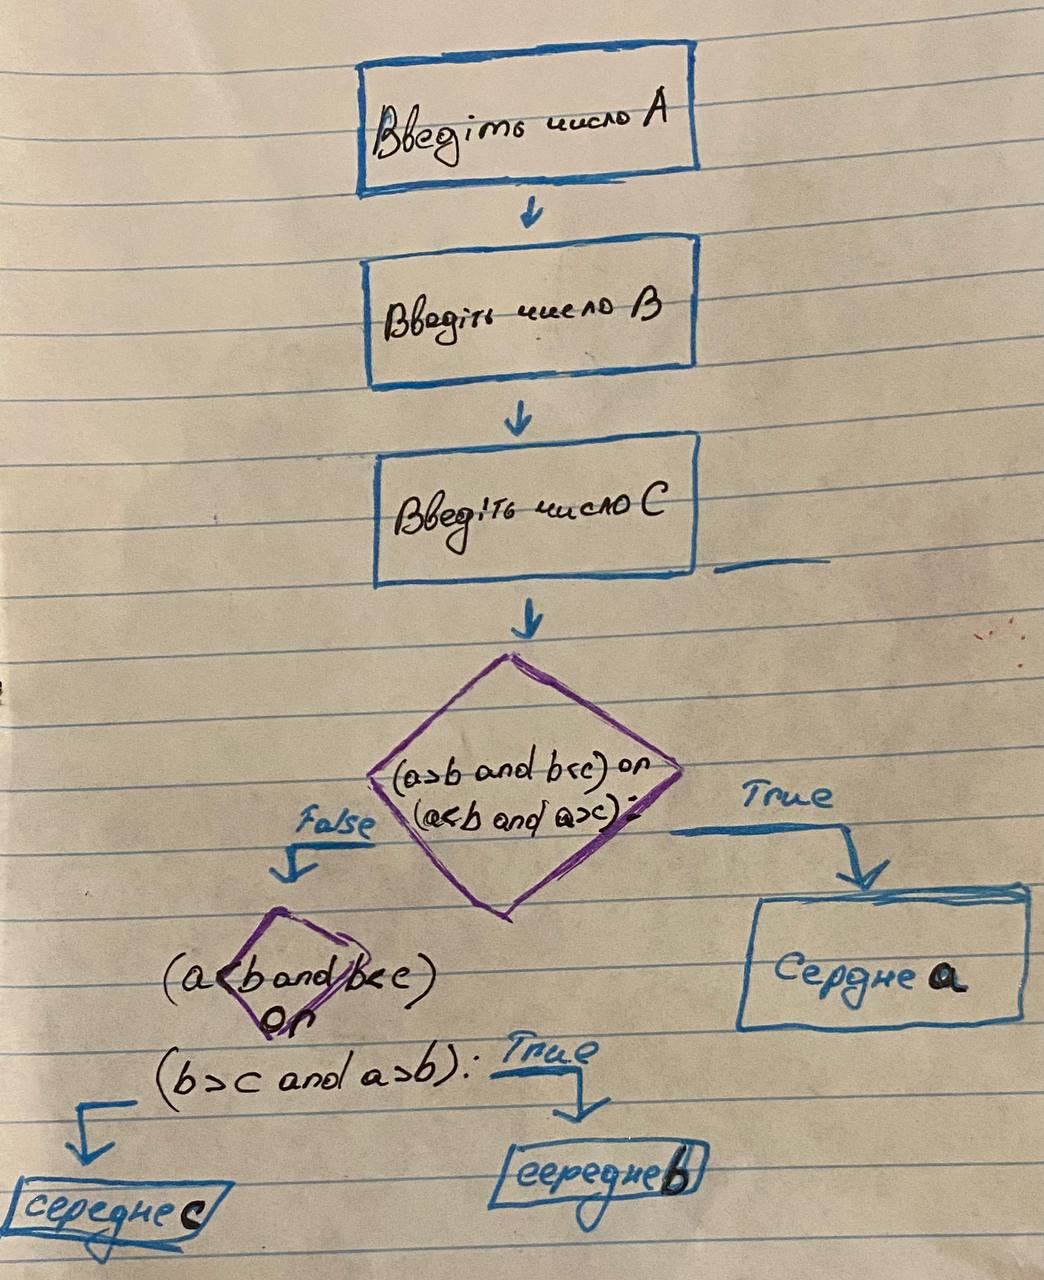 Введіть число A
Введіть число B
Введіть число C
(a>b and b<c) or
(a<b and a>c):
False
True
(a<b and b<c)
or
(b>c and a>b):
Сердне a
True
середне b
середне c